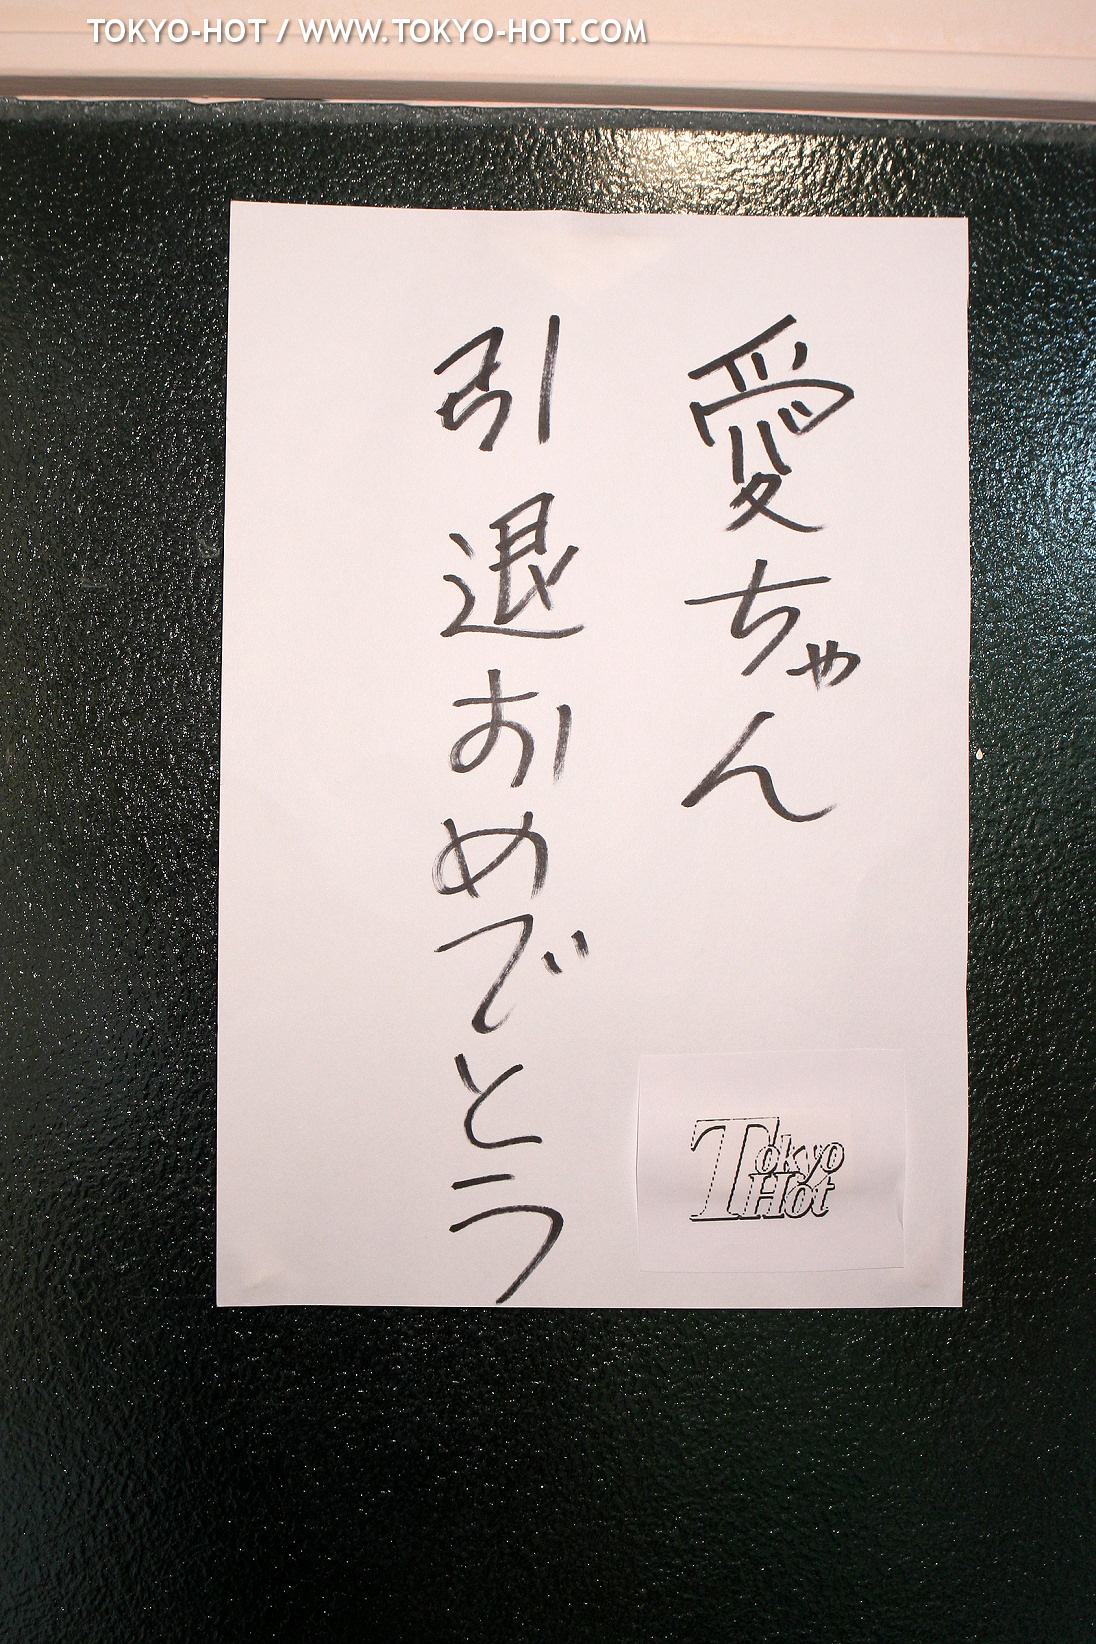 TOKYO-HOT / WWW.TOKYO-HOT.COM
愛ちゃん
引退おめでとう
Tokyo
Hot